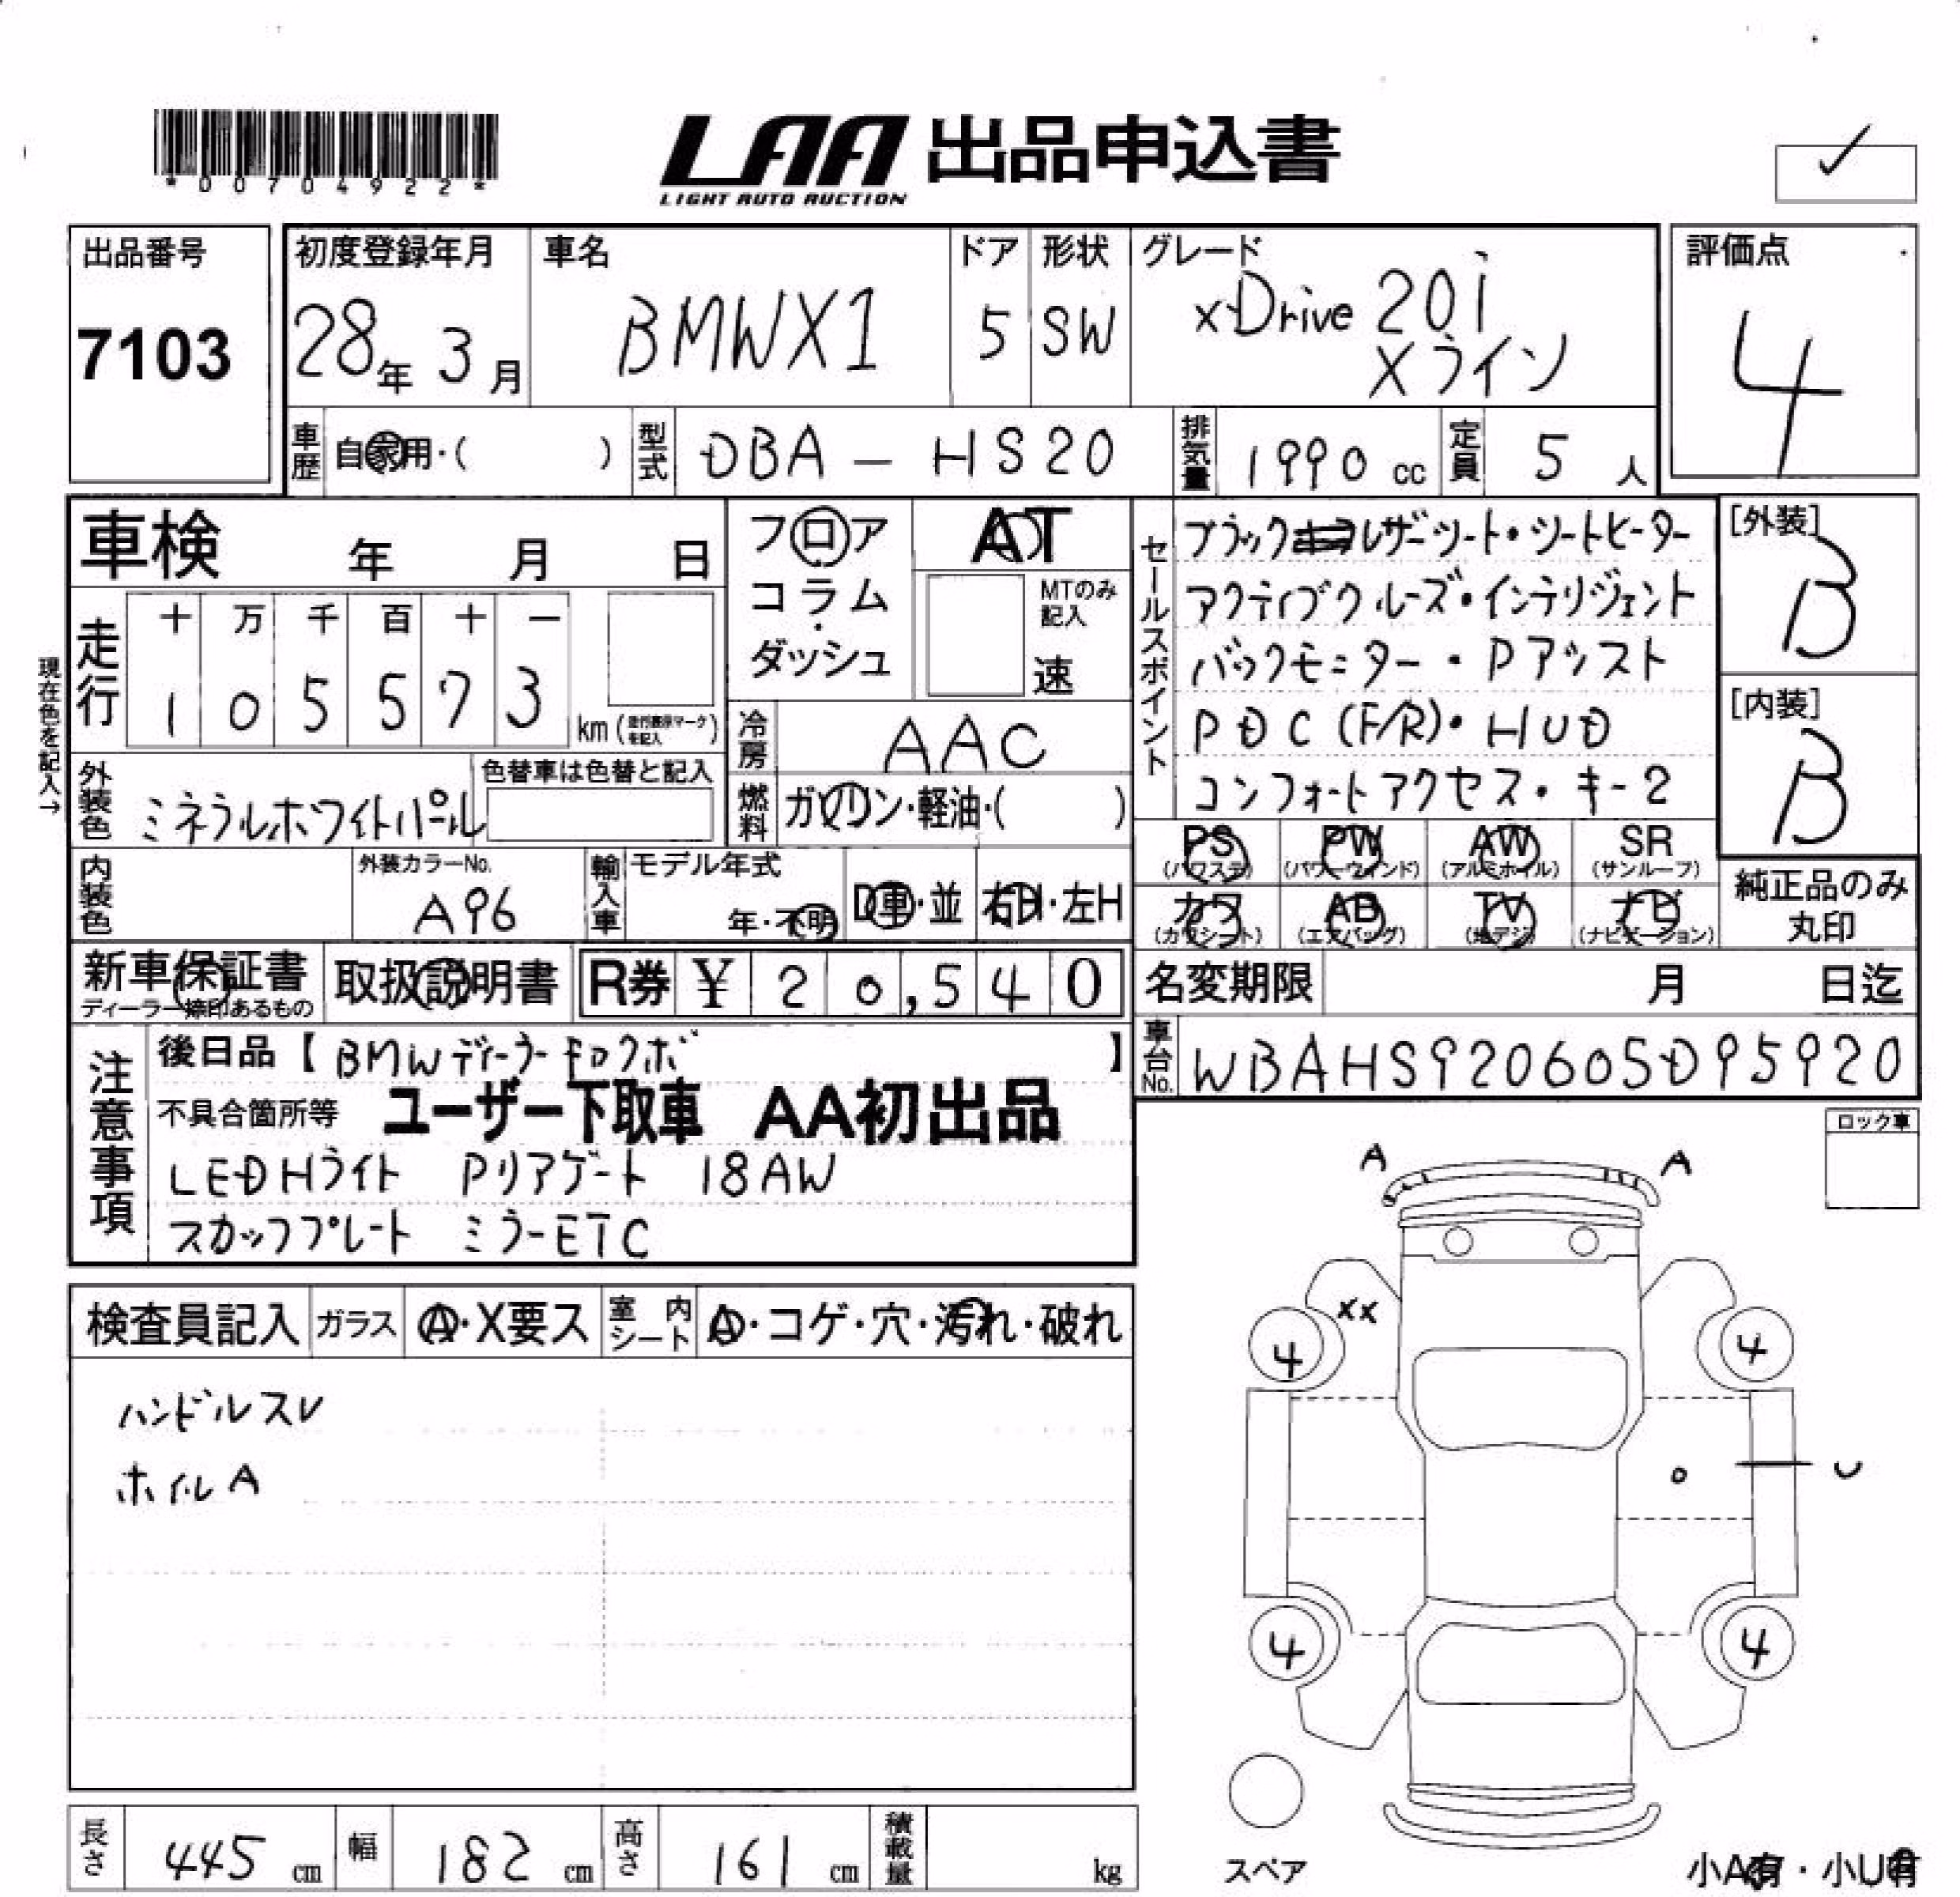 *00704922*
LAA 出品申込書
LIGHT AUTO AUCTION
出品番号
7103
初度登録年月
28年 3月
車名
BMWX1
ドア
5
形状
SW
グレード
xDrive 20i
Xライン
評価点
4
車歴
自家用・( )
型式
DBA - HS20
排気量
1990 cc
定員
5 人
車検 年 月 日
フロア
コラム・
ダッシュ
AT
MTのみ
記入
速
セールスポイント
ブラック レザーシート・シートヒーター
アクティブクルーズ・インテリジェント
バックモニター・Pアシスト
PDC (F/R)・HUD
コンフォートアクセス・キー2
[外装]
B
[内装]
B
現在色を記入→
走行
十 万 千 百 十 一
1 0 5 5 7 3
km
冷房
AAC
外装色
ミネラルホワイトパール
色替車は色替と記入
燃料
ガソリン・軽油・( )
PS
(パワステ)
PW
(パワーウインド)
AW
(アルミホイル)
SR
(サンルーフ)
内装色
外装カラーNo.
A96
輸入車
モデル年式
年・不明
D車・並
右H・左H
カワ
(カワシート)
AB
(エアバッグ)
TV
(地デジ)
ナビ
(ナビゲーション)
純正品のみ
丸印
新車保証書
ディーラー捺印あるもの
取扱説明書
R券 ¥ 20,540
名変期限 月 日迄
車台No.
WBAHS920605D95920
注意事項
後日品【 BMWディーラーキロクボ 】
不具合箇所等 ユーザー下取車 AA初出品
LEDHライト Pリアゲート 18AW
スカッフプレート ミラーETC
ロック車
A A
検査員記入
ガラス
A・X要ス
室内シート
A・コゲ・穴・汚れ・破れ
ハンドルスレ
ホイルA
XX
4 4
U
4 4
スペア
小A有・小U有
長さ
445 cm
幅
182 cm
高さ
161 cm
積載量
kg